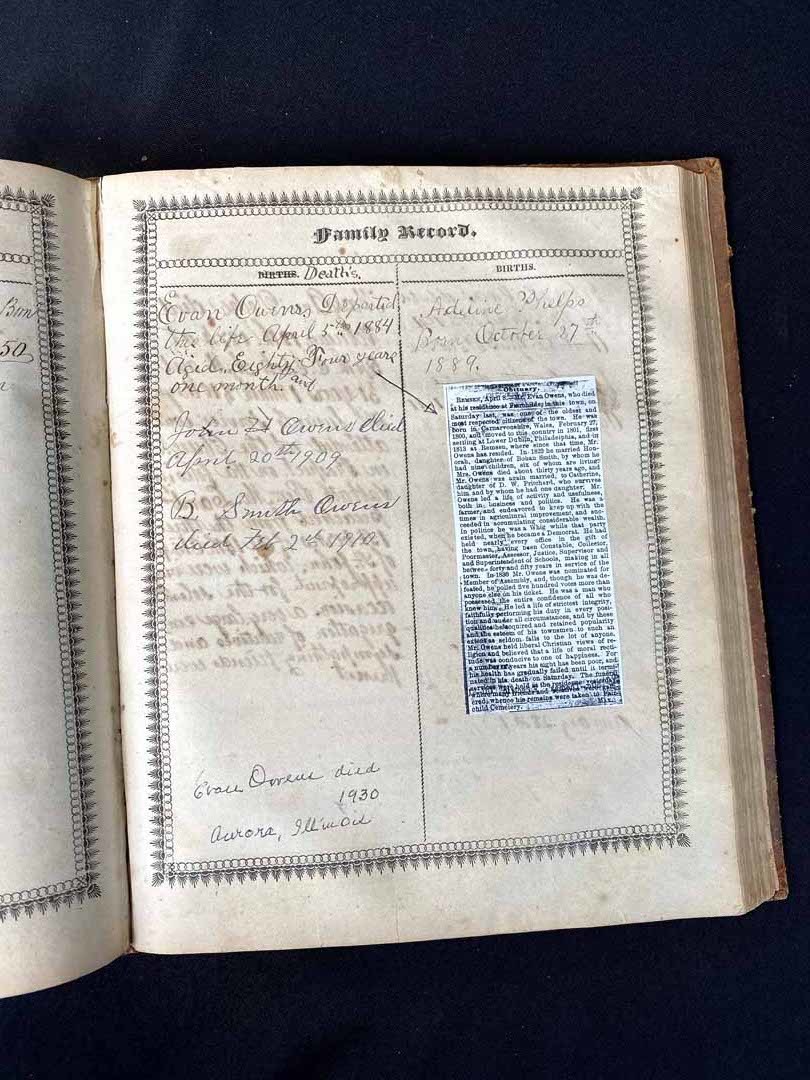 Bun
50
Family Record.
BIRTHS. Death's.
Evan Owens Departed
this life April 5th 1884
Aged Eighty Four years
one month and
John H Owens died
April 20th 1909
B. Smith Owens
died Feb 2 1910.
Evan Owens died
1930
Aurora, Illinois
BIRTHS.
Adeline Phelps
Born October 27th
1889.
Obituary.
REMSEN, April 8.—Mr. Evan Owens, who died
at his residence at Fairchilds, in this town, on
Saturday last, was one of the oldest and
most respected citizens of the town. He was
born in Carnarvonshire, Wales, February 27,
1800, and moved to this country in 1801, first
settling at Lower Dublin, Philadelphia, and in
1813 at Remsen, where since that time, Mr.
Owens has resided. In 1823 he married Hon-
orah, daughter of Bohan Smith, by whom he
had nine children, six of whom are living.
Mrs. Owens died about thirty years ago, and
Mr. Owens was again married, to Catherine,
daughter of D. W. Pritchard, who survives
him, and by whom he had one daughter. Mr.
Owens led a life of activity and usefulness,
both in business and politics. He was a
farmer, and endeavored to keep up with the
times in agricultural improvement, and suc-
ceeded in accumulating considerable wealth.
In politics he was a Whig while that party
existed, when he became a Democrat. He had
held nearly every office in the gift of
the town, having been Constable, Collector,
Poormaster, Assessor, Justice, Supervisor and
and Superintendent of Schools, making in all
between forty and fifty years in service of the
town. In 1836 Mr. Owens was nominated for
Member of Assembly, and, though he was de-
feated, he polled five hundred votes more than
anyone else on his ticket. He was a man who
possessed the entire confidence of all who
knew him. He led a life of strictest integrity,
faithfully performing his duty in every posi-
tion and under all circumstances, and by these
qualities he acquired and retained popularity
and the esteem of his townsmen to such an
extent as seldom falls to the lot of anyone.
Mr. Owens held liberal Christian views of re-
ligion and believed that a life of moral recti-
tude was conducive to one of happiness. For
a number of years his sight has been poor, and
his health has gradually failed until it termi-
nated in his death on Saturday. The funeral
services were held at the residence yesterday
where many friends and relatives were gath-
ered, whence his remains were taken to Fair-
child Cemetery.